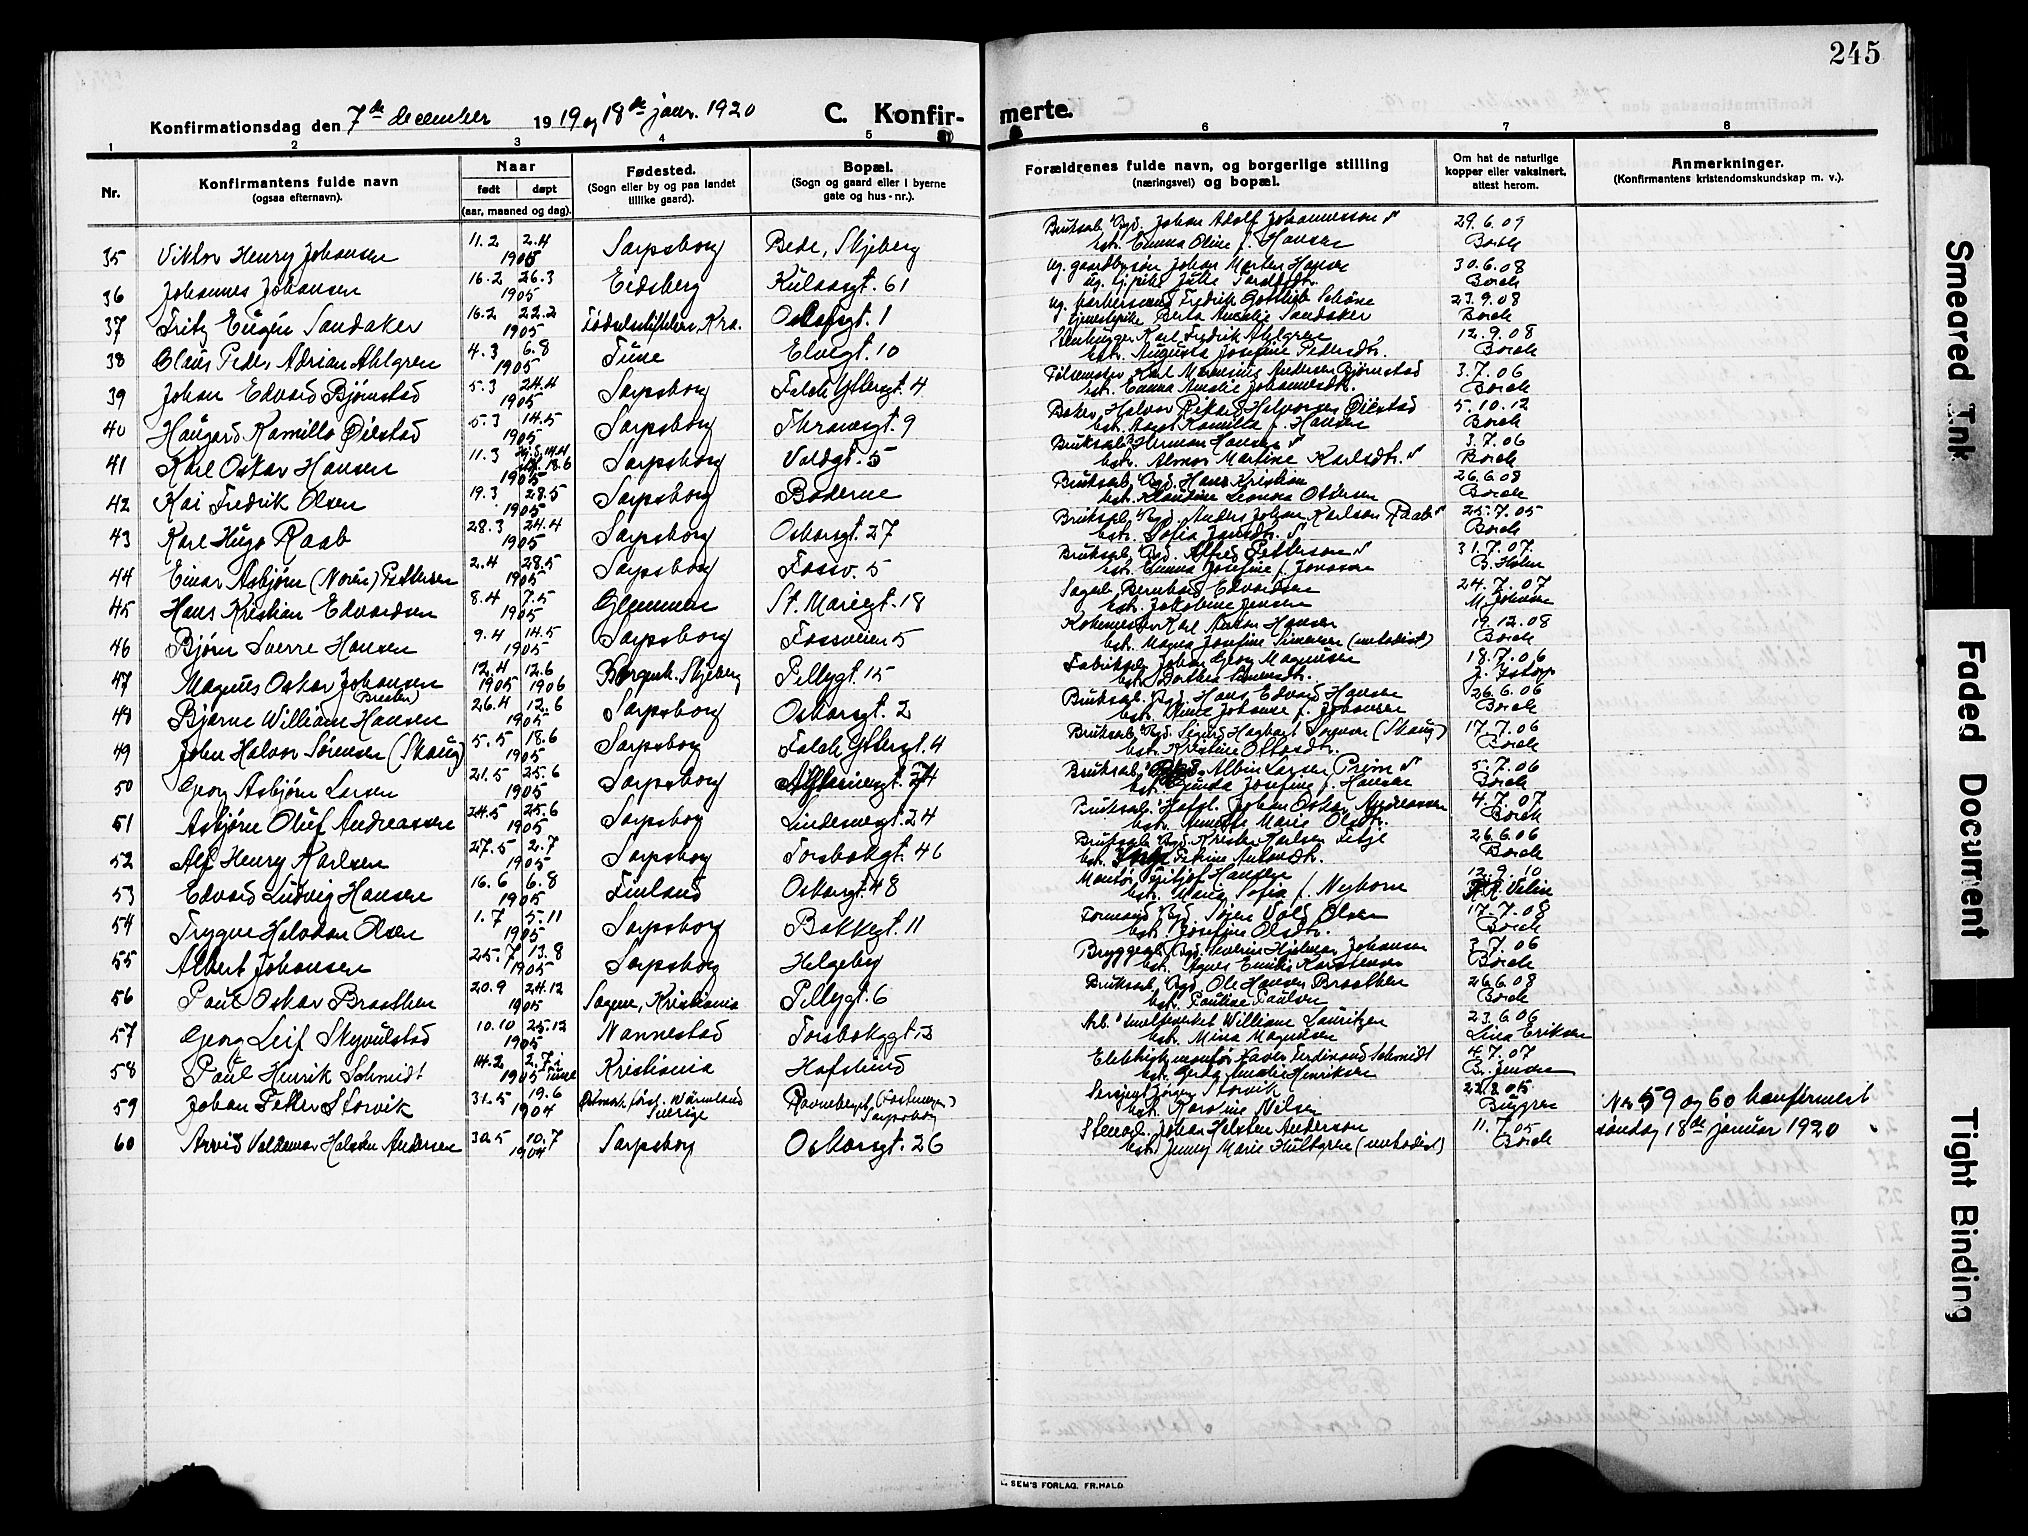 245
Konfirmationsdag den 7de december 1919 og 18de jan. 1920 C. Konfirmerte.
1 2 3 4 5 6 7 8
Nr.
Konfirmantens fulde navn
(ogsaa efternavn).
Naar
født døpt
(aar, maaned og dag).
Fødested.
(Sogn eller by og paa landet
tillike gaard).
Bopæl.
(Sogn og gaard eller i byerne
gate og hus-nr.).
Forældrenes fulde navn, og borgerlige stilling
(næringsvei) og bopæl.
Om hat de naturlige
kopper eller vaksinert,
attest herom.
Anmerkninger.
(Konfirmantens kristendomskundskap m. v.).
35 Viktor Henry Johansen 11.2 2.4 1905 Sarpsborg Bede, Skjeberg Bruksarb. Johan Adolf Johannesson 29.6.09
hstr. Emma Oline f. Hansen Borch
36 Johannes Johansen 16.2 26.3 1905 Eidsberg Kulaasgt. 61 ug. gaardbr.søn Johan Morten Hansen 30.6.08
Borch
37 Fritz Eugen Sandaker 16.2 22.2 1905 Fødselsstiftelsen, Kra. Oskarsgt. 1 ug. barbersvend Fredrik Gottlieb Schöne 23.9.08
tjenestepike Berta Amalie Sandaker Borch
38 Claus Peder Adrian Ahlgren 4.3 6.8 1905 Tune Elvegt. 10 Stenhugger Karl Fredrik Ahlgren 12.9.08
hstr. Augusta Josefine Pedersdtr. Borch
39 Johan Edvard Bjørnstad 5.3 24.4 1905 Sarpsborg Falch Yttersgt. 4 Karl Andersen Bjørnstad 3.7.06
hstr. Emma Amalie Johannesdtr. Borch
40 Haugard Kamillo Øiestad 5.3 14.5 1905 Sarpsborg Thranesgt. 9 Baker Halvor Rikard Halvorsen Øiestad 5.10.12
hstr. Kamilla f. Hansen Borch
41 Karl Oskar Hansen 11.3 18.6 1905 Sarpsborg Voldgt. 5 Bruksarb. Herman Hansen 3.7.06
hstr. Martine Karlsdtr. Borch
42 Kai Fredrik Olsen 19.3 28.5 1905 Sarpsborg Baderne Bruksarb. Hans Kristian 26.6.08
hstr. Klaudine Leonora Ottersen Borch
43 Karl Hugo Raab 28.3 24.4 1905 Sarpsborg Oskarsgt. 27 Bruksarb. Anders Johan Karlson Raab 25.7.05
hstr. Sofia Jansdtr. Borch
44 Einar Asbjørn (Norén) Pettersen 2.4 28.5 1905 Sarpsborg Fossv. 5 Bruksarb. Alfred Petterson 31.7.07
hstr. Emma Josefine f. Jonsson B. Holm
45 Hans Kristian Edvardsen 8.4 7.5 1905 Glemmen St. Mariegt. 18 Sagarb. Bernhard Edvardsen 24.7.07
hstr. Jakobine Jensen M. Johnsen
46 Bjørn Sverre Hansen 9.4 14.5 1905 Sarpsborg Fossveien 5 Karl Anton Hansen 19.12.08
hstr. Magna Josefine Simensen (metodist) Borch
47 Magnus Oskar Johansen 12.4 1905 12.6 1906 Skjeberg Pellygt. 15 Fabrikarb. Johan Georg Magnusen 18.7.06
hstr. Dorthea
48 Bjarne William Hansen 26.4 12.6 1905 Sarpsborg Oskarsgt. 2 Bruksarb. Hans Edvard Hansen 26.6.06
hstr. Mina Johanne f. Johansen Borch
49 John Halvor Sørensen (Skaug) 5.5 18.6 1905 Sarpsborg Falch Yttersgt. 4 Bruksarb. Sigurd Hagbart Sørensen (Skaug) 17.7.06
hstr. Kristine Ottosdtr. Borch
50 Georg Asbjørn Larsen 21.5 25.6 1905 Sarpsborg Bruksarb. Albin Larsen Prim 5.7.06
hstr. Gunda Josefine f. Hansen Borch
51 Asbjørn Oluf Andreassen 24.5 25.6 1905 Sarpsborg Lindemansgt. 24 Bruksarb. Hafsl. Johan Oskar Andreassen 4.7.07
hstr. Annette Marie Olsdtr. Borch
52 Alf Henry Karlsen 27.5 2.7 1905 Sarpsborg Torsbækgt. 46 Bruksarb. Krister Karlsen Tetje 26.6.06
hstr. Antonsdtr. Borch
53 Edvard Ludvig Hansen 16.6 6.8 1905 Finland Oskarsgt. 48 Montør Fritjof Hansen 12.9.10
hstr. Maria Sofia f. Nyborn
54 Trygve Halvdan Olsen 1.7 5.11 1905 Sarpsborg Bakkegt. 11 Formand Vold Olsen 17.7.08
hstr. Josefine Olsdtr. Borch
55 Albert Johansen 25.7 13.8 1905 Sarpsborg Helgeby Bryggearb. Severin Hjelmar Johansen 3.7.06
hstr. Agnes Emilie Karstensen Borch
56 Paul Oskar Braathen 20.9 24.12 1905 Sagene, Kristiania Pellygt. 6 Bruksarb. Ole Hansen Braathen 26.6.08
hstr. Pauline Paulsen Borch
57 Georg Leif Skyvulstad 10.10 25.12 1905 Nannestad Torsbækgt. Arb. Smelteverket William Lauritzen 23.6.06
hstr. Mina Magnusen Lina Eriksen
58 Paul Henrik Schmidt 14.2 2.7 i 1905 Tune Kristiania Hafslund Elektrikmontør Xaver Ferdinand Schmidt 4.7.07
hstr. Gerda Amalie Henriksen B. Jensen
59 Johan Petter Storvik 31.5 19.6 1904 Östmark förs. Värmland Sverige Ravneberget (Fastningen) Sarpsborg Sersjent Jørgen Storvik
hstr. Karoline Nilsen Bugges Nr 59 og 60 konfirmert
60 Arvid Valdemar Holsten Andersen 30.5 10.7 1904 Sarpsborg Oskarsgt. 26 Johan Holsten Anderson 11.7.05 søndag 18de januar 1920
hstr. Jenny Marie Hultgren (metodist) Borch
SEM'S FORLAG, FR.HALD
Smeared Ink
Faded Document
Tight Binding